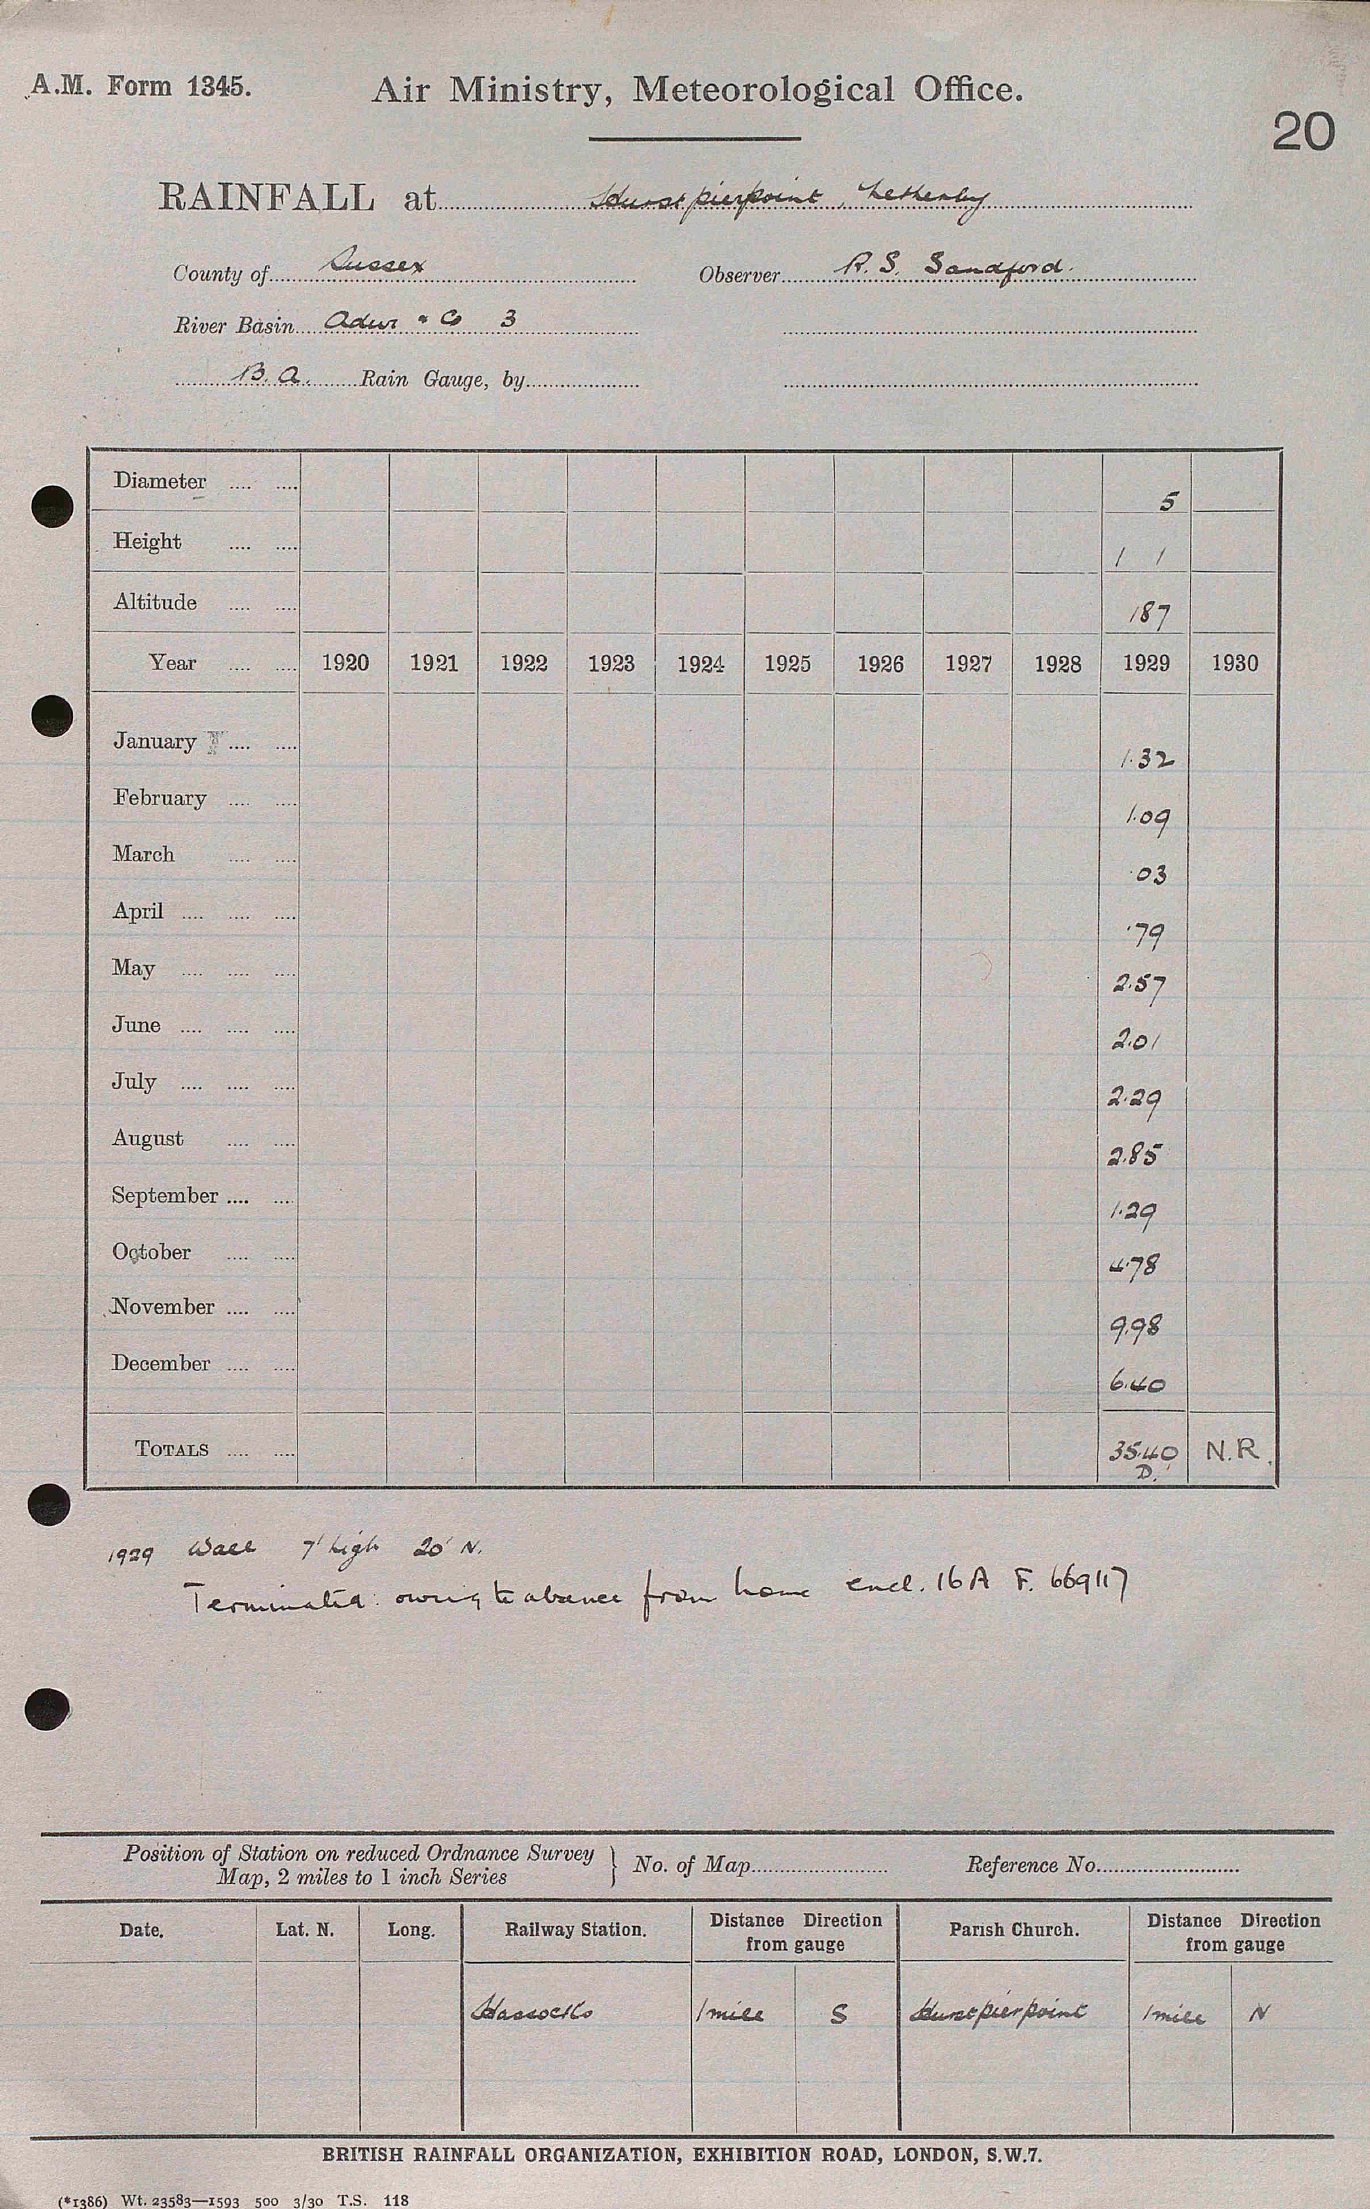 A.M. Form 1345.
Air Ministry, Meteorological Office.
20
RAINFALL at Hurstpierpoint, Letherby
County of Sussex Observer R. S. Sandford.
River Basin Adur & Co 3
B.A. Rain Gauge, by
Diameter .... .... 5
Height .... .... 1 1
Altitude .... .... 187
Year .... .... 1920 1921 1922 1923 1924 1925 1926 1927 1928 1929 1930
January .... .... 1.32
February .... .... 1.09
March .... .... .03
April .... .... .... .79
May .... .... .... 2.57
June .... .... .... 2.01
July .... .... .... 2.29
August .... .... 2.85
September .... .... 1.29
October .... .... 4.78
November .... .... 9.98
December .... .... 6.40
TOTALS .... .... 35.40 N.R.
D.
1929 Wall 7' high 20' N.
Terminated: owing to absence from home encl. 16A F. 669117
Position of Station on reduced Ordnance Survey Map, 2 miles to 1 inch Series } No. of Map Reference No.
Date. Lat. N. Long. Railway Station. Distance Direction from gauge Parish Church. Distance Direction from gauge
Hassocks 1 mile S Hurstpierpoint 1 mile N
BRITISH RAINFALL ORGANIZATION, EXHIBITION ROAD, LONDON, S.W.7.
(*1386) Wt. 23583—1593 500 3/30 T.S. 118